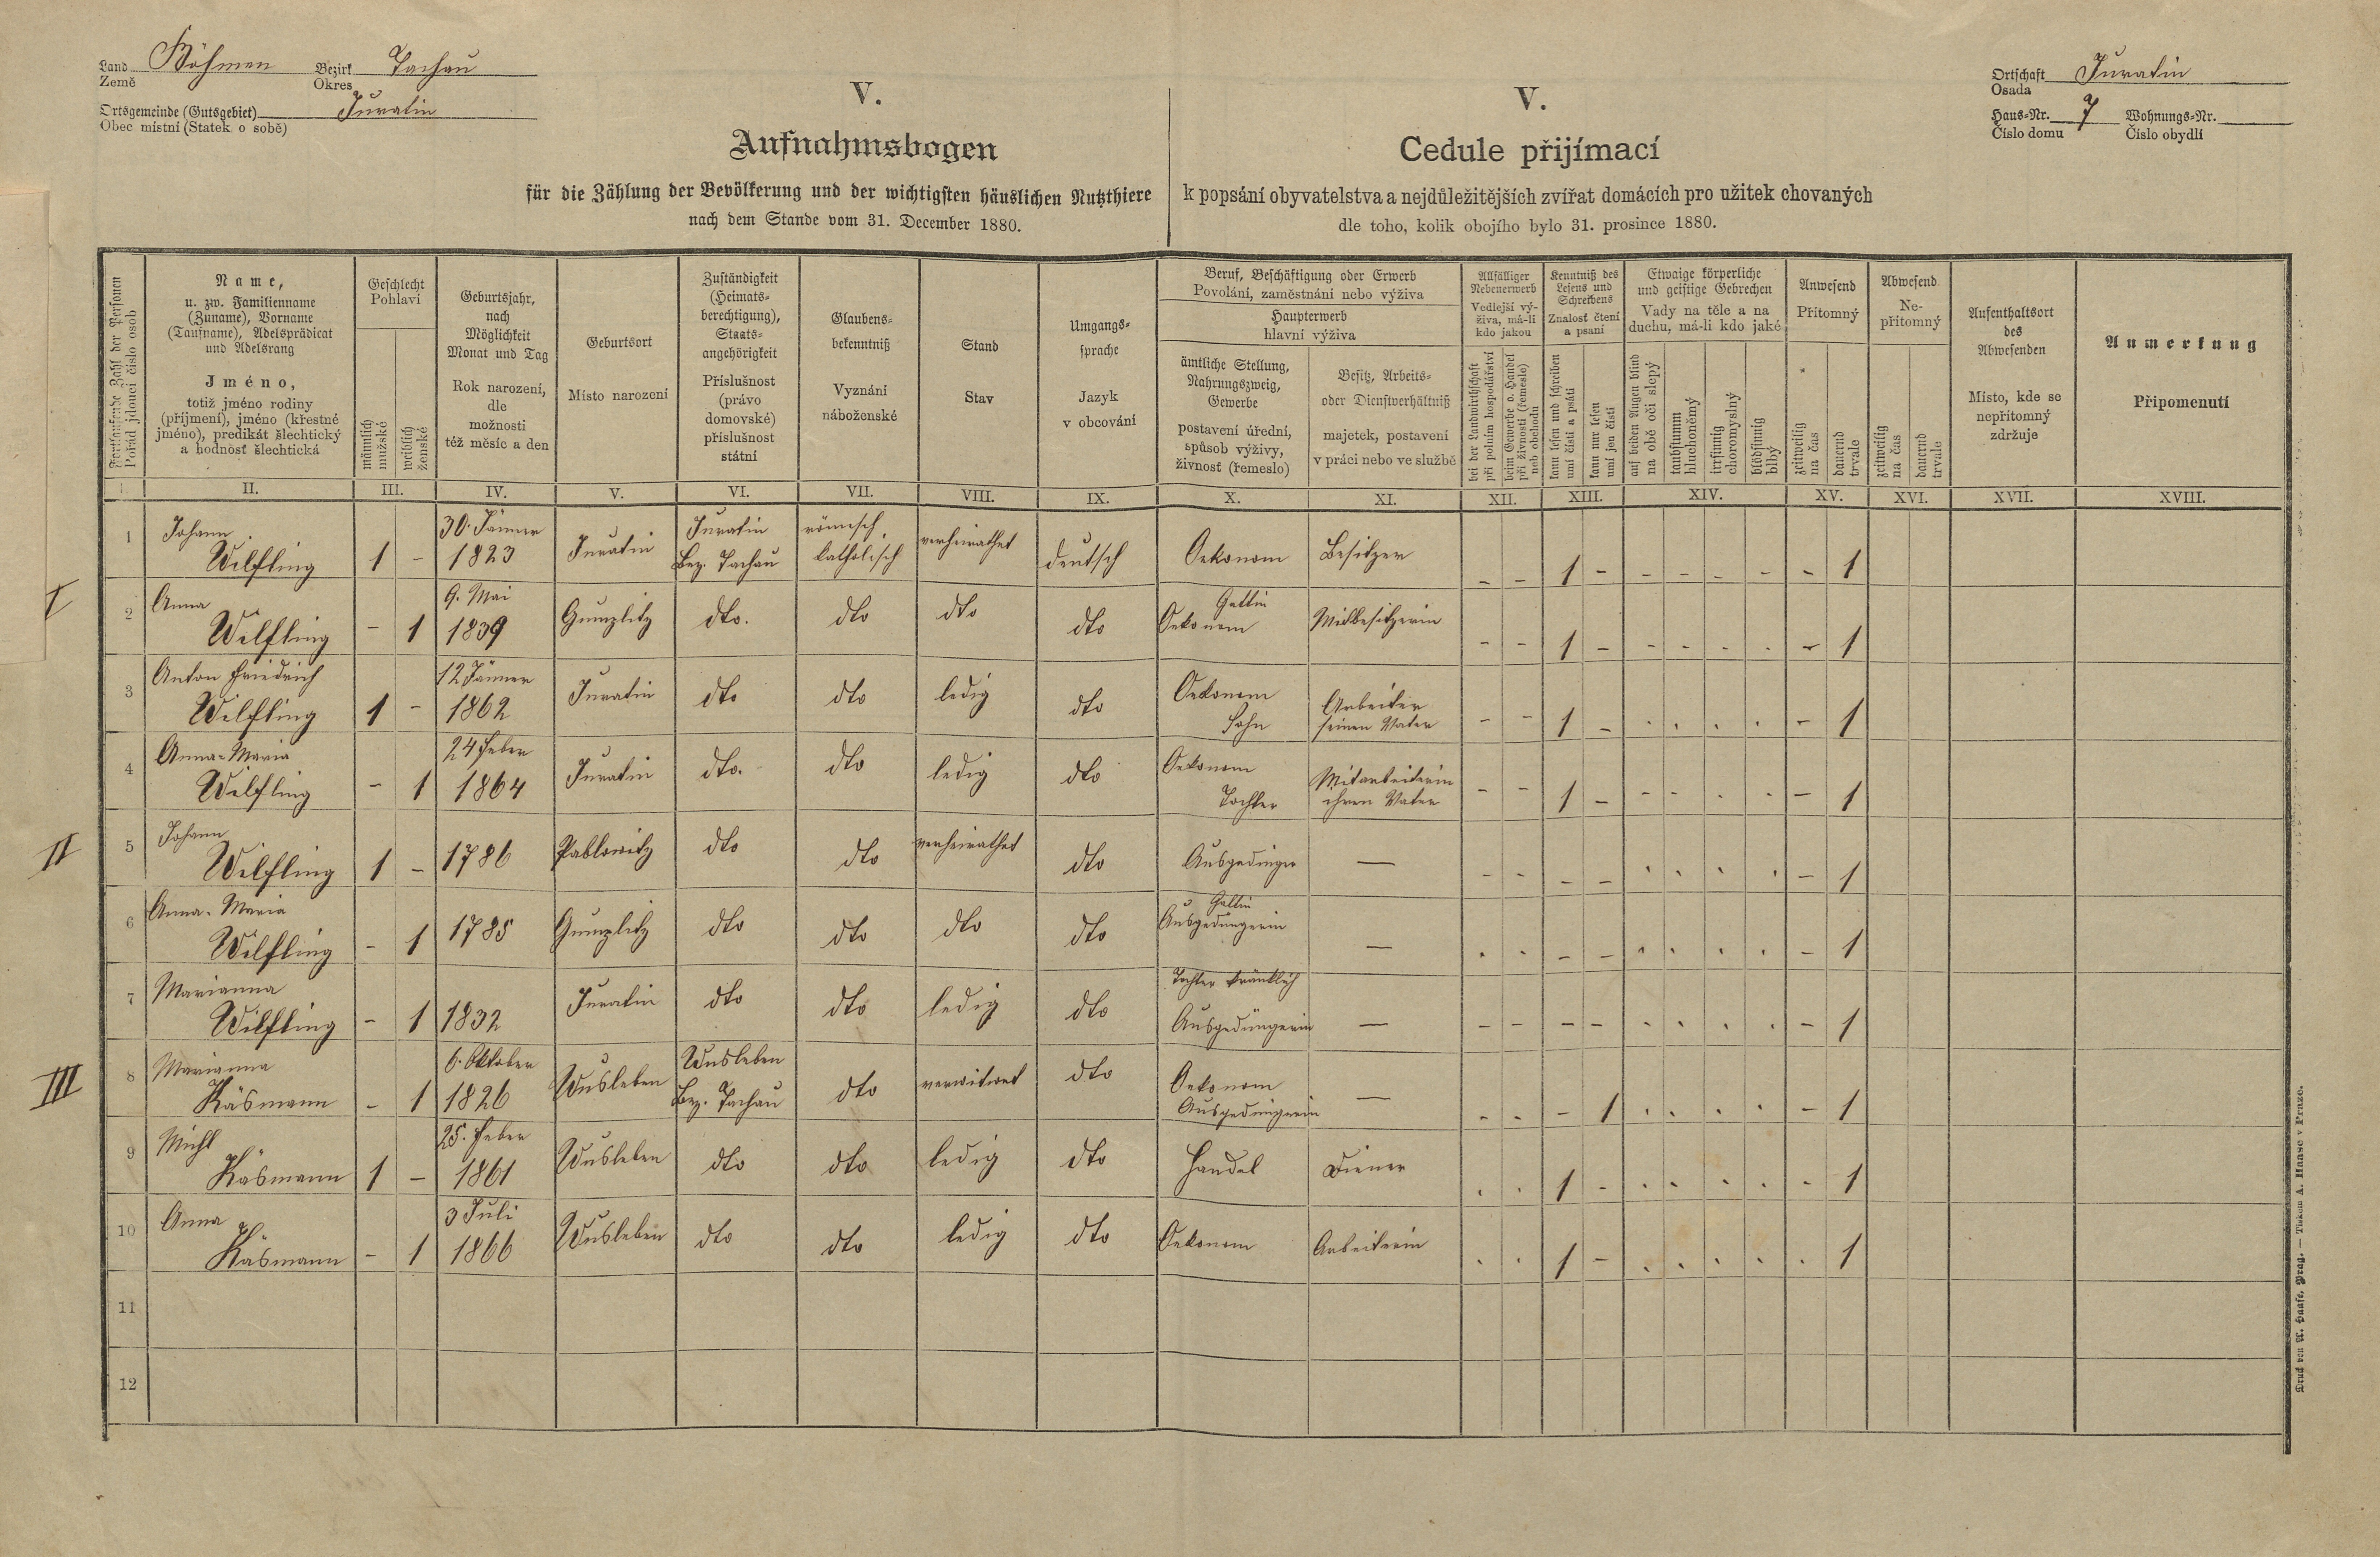 Land Böhmen Bezirk Tachau
Země Okres
Ortsgemeinde (Gutsgebiet) Juratin
Obec místní (Statek o sobě)
Ortschaft Juratin
Osada
Haus-Nr. 7 Wohnungs-Nr.
Číslo domu Číslo obydlí
V.
Aufnahmsbogen
für die Zählung der Bevölkerung und der wichtigsten häuslichen Nutzthiere
nach dem Stande vom 31. December 1880.
V.
Cedule přijímací
k popsání obyvatelstva a nejdůležitějších zvířat domácích pro užitek chovaných
dle toho, kolik obojího bylo 31. prosince 1880.
Fortlaufende Zahl der Personen
Pořád jdoucí číslo osob
Name,
u. zw. Familienname
(Zuname), Vorname
(Taufname), Adelsprädicat
und Adelsrang
Jméno,
totiž jméno rodiny
(příjmení), jméno (křestné
jméno), predikát šlechtický
a hodnosť šlechtická
Geschlecht
Pohlaví
männlich
mužské
weiblich
ženské
Geburtsjahr,
nach
Möglichkeit
Monat und Tag
Rok narození,
dle
možnosti
též měsíc a den
Geburtsort
Místo narození
Zuständigkeit
(Heimats-
berechtigung),
Staats-
angehörigkeit
Příslušnost
(právo
domovské)
příslušnost
státní
Glaubens-
bekenntniß
Vyznání
náboženské
Stand
Stav
Umgangs-
sprache
Jazyk
v obcování
Beruf, Beschäftigung oder Erwerb
Povolání, zaměstnání nebo výživa
Haupterwerb
hlavní výživa
ämtliche Stellung,
Nahrungszweig,
Gewerbe
postavení úřední,
spůsob výživy,
živnosť (řemeslo)
Besitz, Arbeits-
oder Dienstverhältniß
majetek, postavení
v práci nebo ve službě
Allfälliger
Nebenerwerb
Vedlejší vý-
živa, má-li
kdo jakou
bei der Landwirthschaft
při polním hospodářství
beim Gewerbe o. Handel
při živnosti (řemeslo)
neb obchodu
Kenntniß des
Lesens und
Schreibens
Znalosť čtení
a psaní
kann lesen und schreiben
umí čísti a psáti
kann nur lesen
umí jen čísti
Etwaige körperliche
und geistige Gebrechen
Vady na těle a na
duchu, má-li kdo jaké
auf beiden Augen blind
na obě oči slepý
taubstumm
hluchoněmý
irrsinnig
choromyslný
blödsinnig
blbý
Anwesend
Přítomný
zeitweilig
na čas
dauernd
trvale
Abwesend
Ne-
přítomný
zeitweilig
na čas
dauernd
trvale
Aufenthaltsort
des
Abwesenden
Místo, kde se
nepřítomný
zdržuje
Anmerkung
Připomenutí
II. III. IV. V. VI. VII. VIII. IX. X. XI. XII. XIII. XIV. XV. XVI. XVII. XVIII.
I
1 Johann 30. Jänner Juratin römisch
Wilfling 1 - 1823 Juratin Bez. Tachau katholisch verheirathet deutsch Oekonom Besitzer - - 1 - - - - - - 1
2 Anna 9. Mai Gattin
Wilfling - 1 1839 Gumplitz dto. dto dto dto Oekonom Mitbesitzerin - - 1 - - - - - - 1
3 Anton Friedrich 12 Jänner Oekonom Arbeiter
Wilfling 1 - 1862 Juratin dto dto ledig dto Sohn seinen Vater - - 1 - . . . . - 1
4 Anna-Maria 24 Feber Oekonom Mitarbeiterin
Wilfling - 1 1864 Juratin dto. dto ledig dto Tochter ihren Vater - - 1 - - - . - - 1
II
5 Johann
Wilfling 1 - 1786 Pablowitz dto dto verheirathet dto Ausgedinger — - - - - . . . . - 1
6 Anna-Maria Gattin
Wilfling - 1 1785 Gumplitz dto dto dto dto Ausgedingerin — . . - - . . . . - 1
7 Marianna Tochter kränklich
Wilfling - 1 1832 Juratin dto dto ledig dto Ausgedingerin — - - - - . . . . - 1
III
8 Marianna 6. Oktober Wusleben Oekonom
Käsmann - 1 1826 Wusleben Bez. Tachau dto verwitwet dto Ausgedingerin — . . - 1 . . . . - 1
9 Michl 25. Feber
Käsmann 1 - 1861 Wusleben dto dto ledig dto Handel Diener . . 1 - . . . . - 1
10 Anna 3 Juli
Käsmann - 1 1866 Wusleben dto dto ledig dto Oekonom Arbeiterin . . 1 - . . . . . 1
11
12
Druck von A. Haase, Prag. — Tiskem A. Haase v Praze.